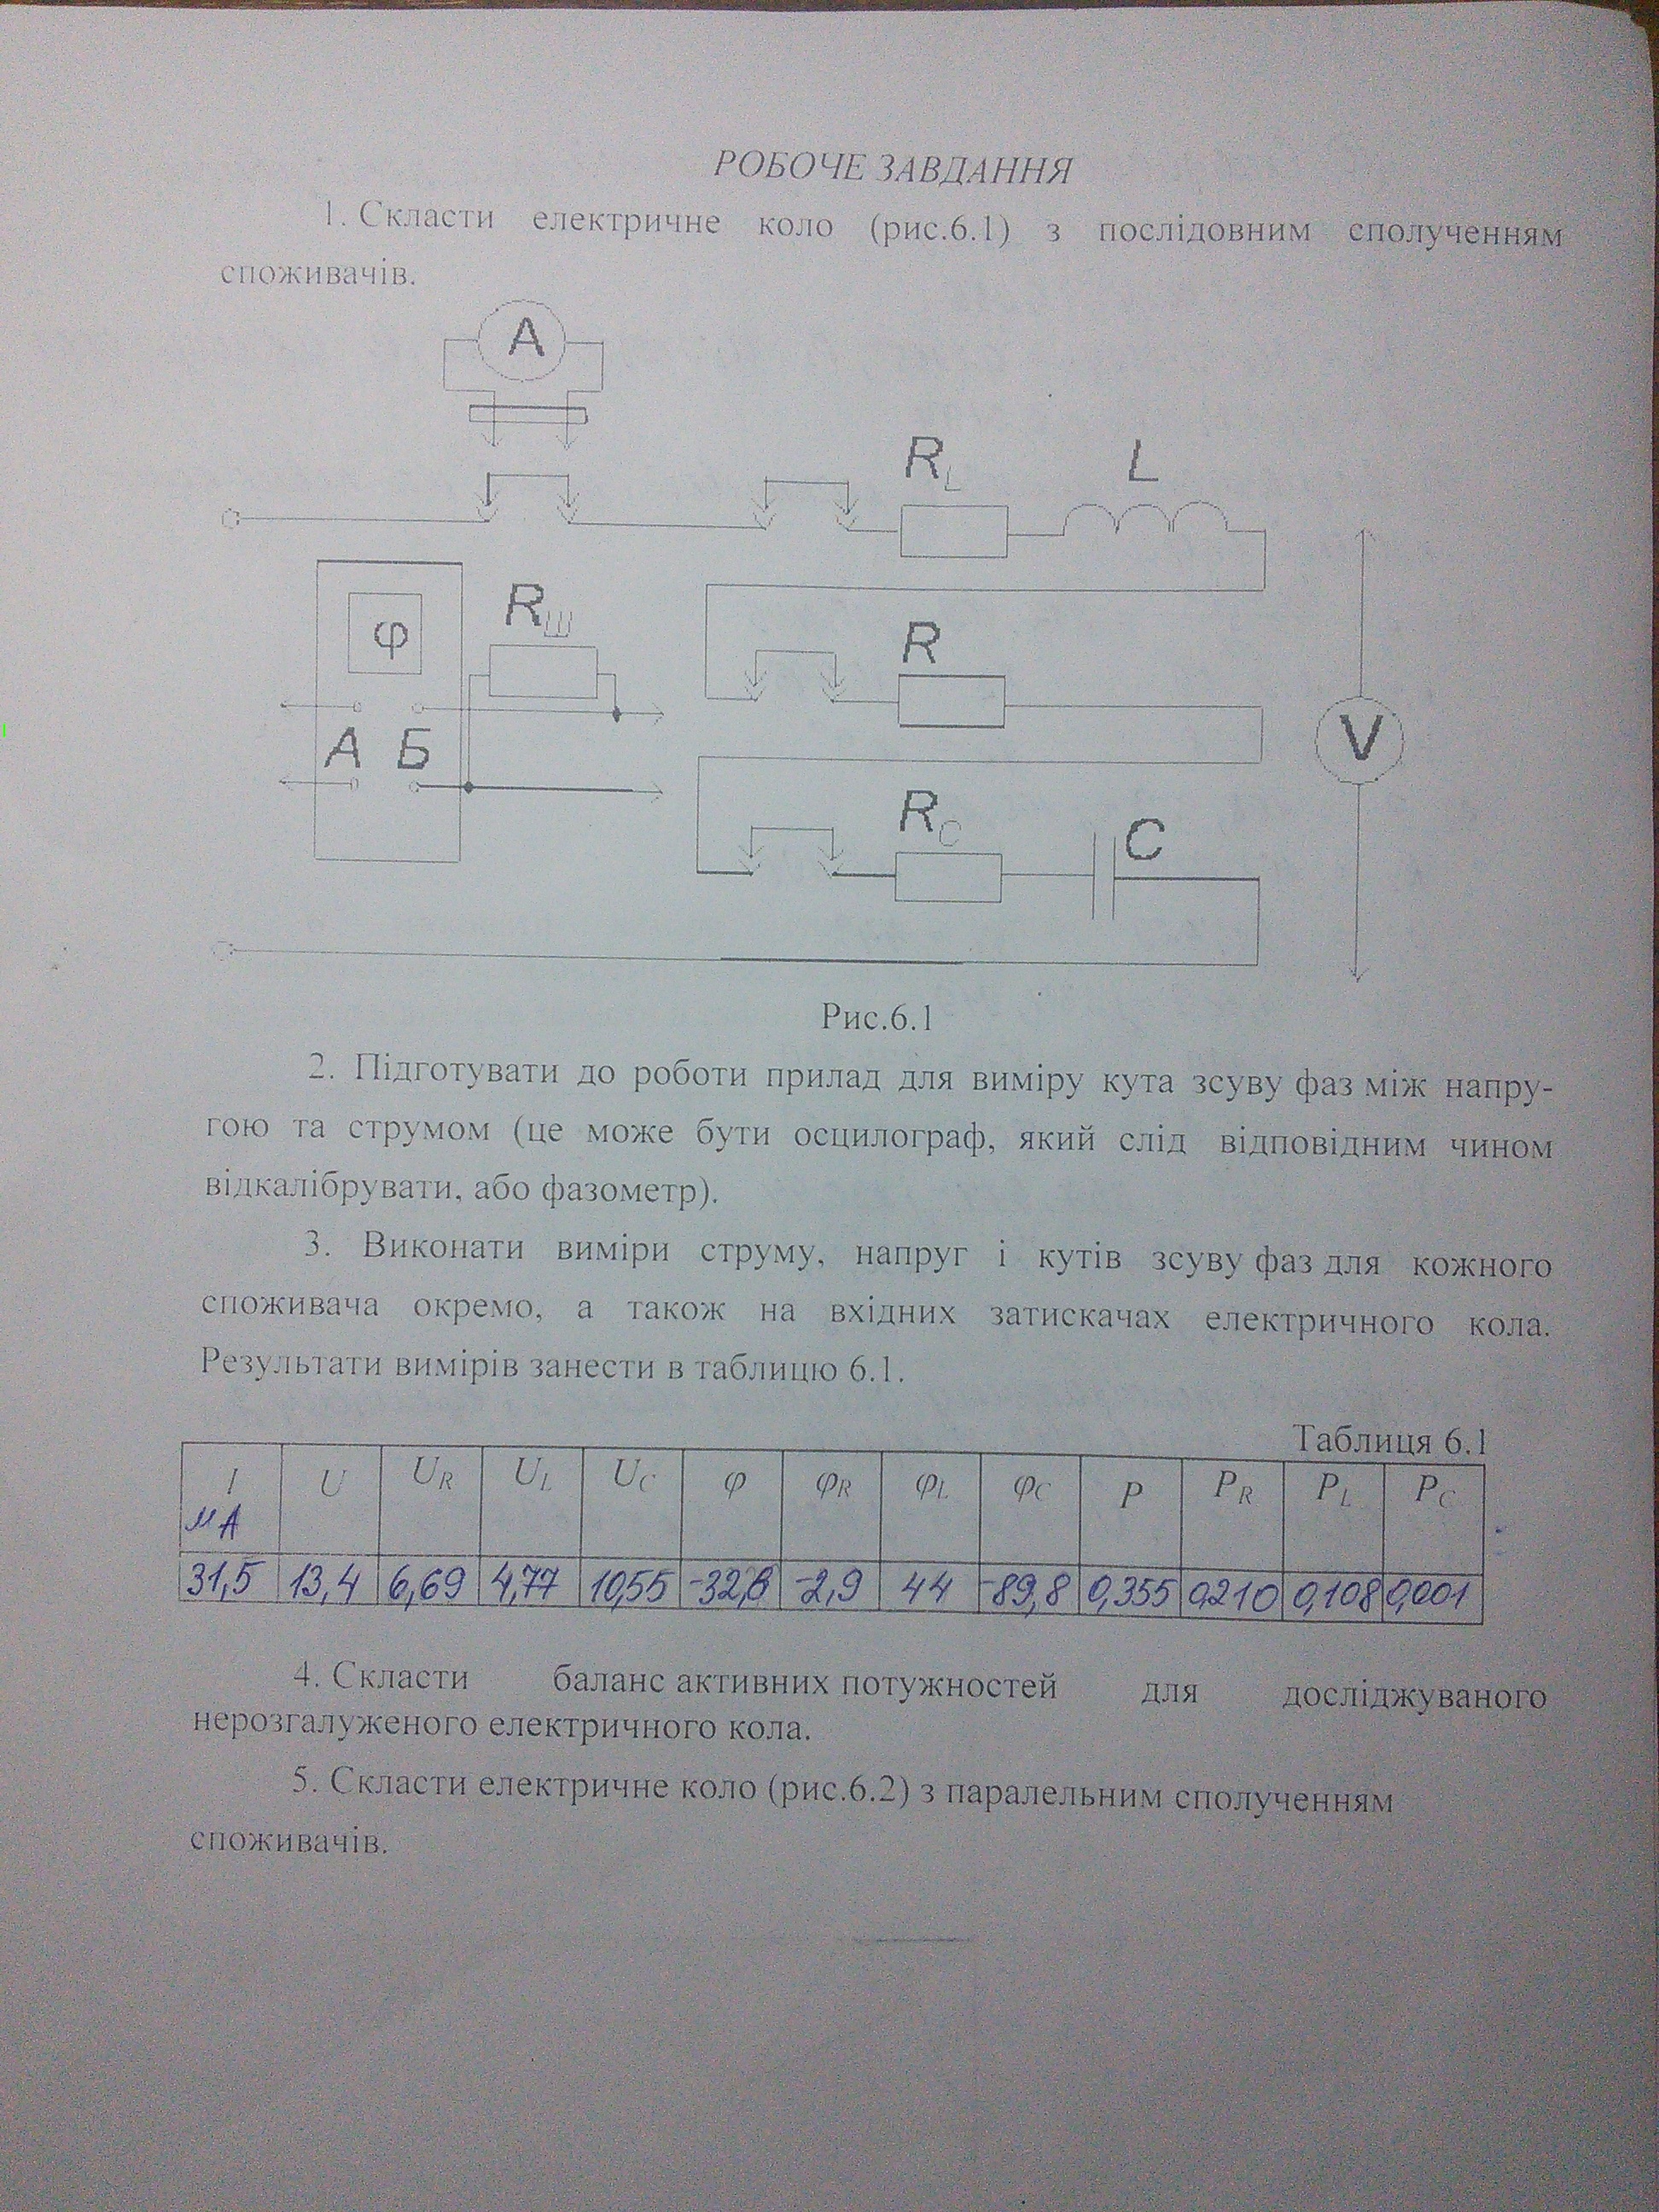 РОБОЧЕ ЗАВДАННЯ
1. Скласти електричне коло (рис.6.1) з послідовним сполученням
споживачів.
A
R_L L
R_Ш
φ
R
A Б
V
R_C
C
Рис.6.1
2. Підготувати до роботи прилад для виміру кута зсуву фаз між напру-
гою та струмом (це може бути осцилограф, який слід відповідним чином
відкалібрувати, або фазометр).
3. Виконати виміри струму, напруг і кутів зсуву фаз для кожного
споживача окремо, а також на вхідних затискачах електричного кола.
Результати вимірів занести в таблицю 6.1.
Таблиця 6.1
I U U_R U_L U_C φ φ_R φ_L φ_C P P_R P_L P_C
мА
31,5 13,4 6,69 4,77 10,55 -2,9 44 -89,8 0,355 0,210 0,108 0,001
4. Скласти баланс активних потужностей для досліджуваного
нерозгалуженого електричного кола.
5. Скласти електричне коло (рис.6.2) з паралельним сполученням
споживачів.